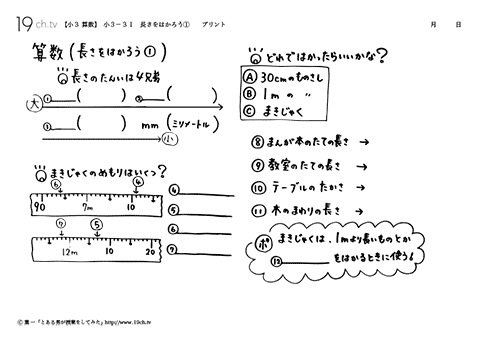 19 ch.tv 【小3 算数】 小3－31 長さをはかろう① プリント 月 日
算数(長さをはかろう①)
長さのたんいは4兄弟
大
① ( ) ② ( )
③ ( ) mm (ミリメートル)
小
まきじゃくのめもりはいくつ?
⑥ ④
90 7m 10
⑦ ⑤
12m 10 20
④
⑤
⑥
⑦
どれではかったらいいかな?
Ⓐ 30cmのものさし
Ⓑ 1mの 〃
Ⓒ まきじゃく
⑧ まんが本のたての長さ →
⑨ 教室のたての長さ →
⑩ テーブルのたかさ →
⑪ 木のまわりの長さ →
ポ まきじゃくは、1mより長いものとか
⑫ をはかるときに使う!
Ⓒ 葉一「とある男が授業をしてみた」http://www.19ch.tv